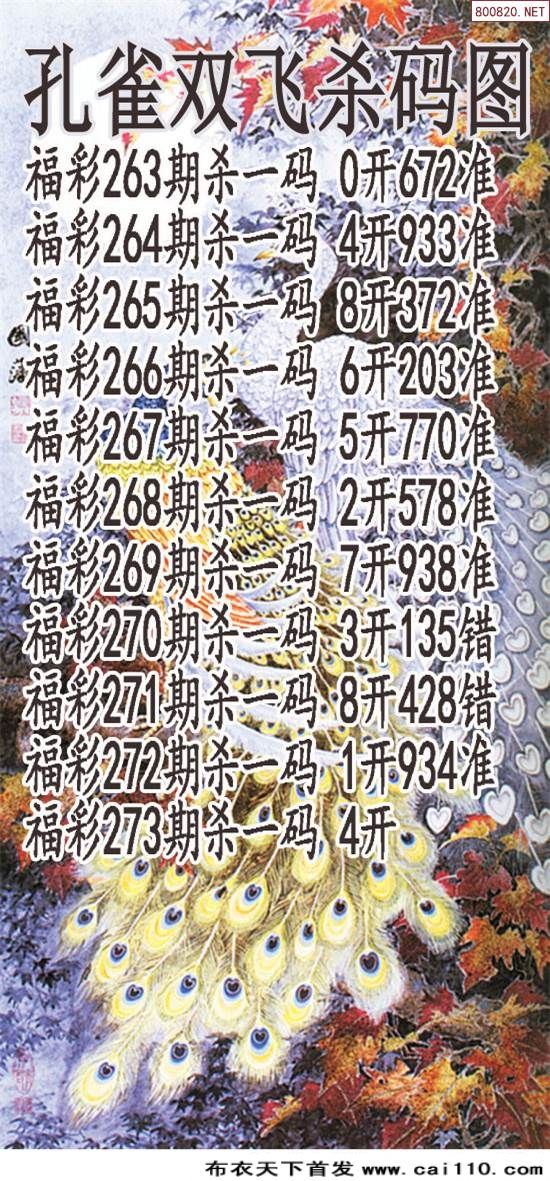 800820.NET
孔雀双飞杀码图
福彩263期杀一码 0开672准
福彩264期杀一码 4开933准
福彩265期杀一码 8开372准
福彩266期杀一码 6开203准
福彩267期杀一码 5开770准
福彩268期杀一码 2开578准
福彩269期杀一码 7开938准
福彩270期杀一码 3开135错
福彩271期杀一码 8开428错
福彩272期杀一码 1开934准
福彩273期杀一码 4开
布衣天下首发 www.cai110.com